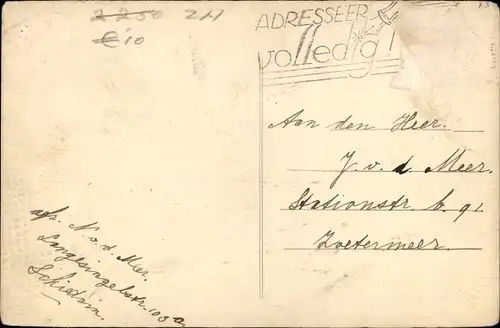 2250 ZH
€ 10
ADRESSEER
volledig!
Aan den Heer.
J. v. d. Meer.
Stationstr. b. 91
Zoetermeer.
afs. N. v. d. Meer.
Langesingelstr. 103a
Schiedam.